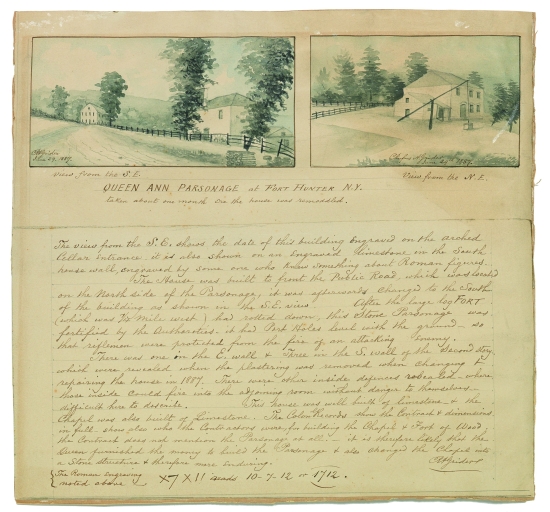 1887.
1887.
View from the S.E.
View from the N.E.
QUEEN ANN, PARSONAGE at FORT HUNTER N.Y.
taken about one month the house was remodelled.
The view from the S.E. shows the date of this building Engraved on the arched
Cellar entrance, it is also shown on an Engraved limestone in the South
house wall, engraved by some one who knew something about Roman figures.
The House was built to front the Public Road, which was located
on the North side of the Parsonage, it was afterwards changed to the South
of the building as shown in the S.E. view. After the large log FORT
(which was ½ Mile west) had rotted down, this Stone Parsonage was
fortified by the Authorities. it had Port Holes level with the ground so
that riflemen were protected from the fire of an attacking Enemy.
There was one in the E. wall & Three in the S. wall of the Second story,
which were revealed when the plastering was removed when changing &
repairing the house in 1887. There were other inside defences revealed where
those inside could fire into the adjoining room without danger to themselves
difficult here to describe. This house was well built of limestone & the
Chapel was also built of limestone. The Records show the Contract & dimensions
in full. show also who the Contractors were, for building the Chapel & Fort of Wood,
the Contract does not mention the Parsonage at all; it is therefore likely that the
Queen furnished the money to build the Parsonage & also changed the Chapel into
a Stone Structure & therefore more enduring.
The Roman engraving
noted above X7X11 reads 10-7-12 or 1712.